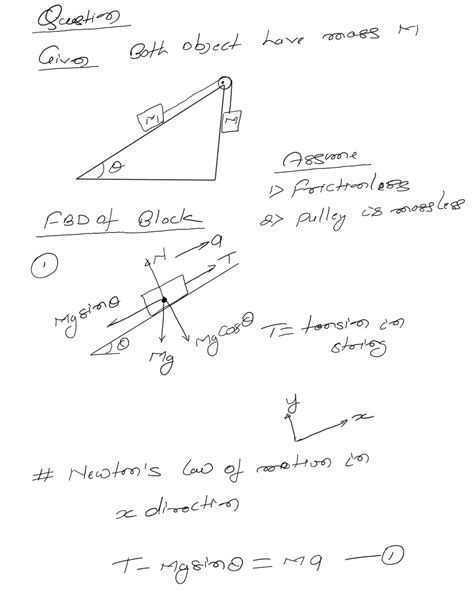 Question
Given Both object have mass M
M
M
θ
Assume
1> frictionless
2> pulley is massless
FBD of Block
①
N
a
T
Mg sinθ
θ
Mg
Mg cosθ
T = tension in
string
y
x
# Newton's law of motion in
x direction
T - Mg sinθ = Ma — ①